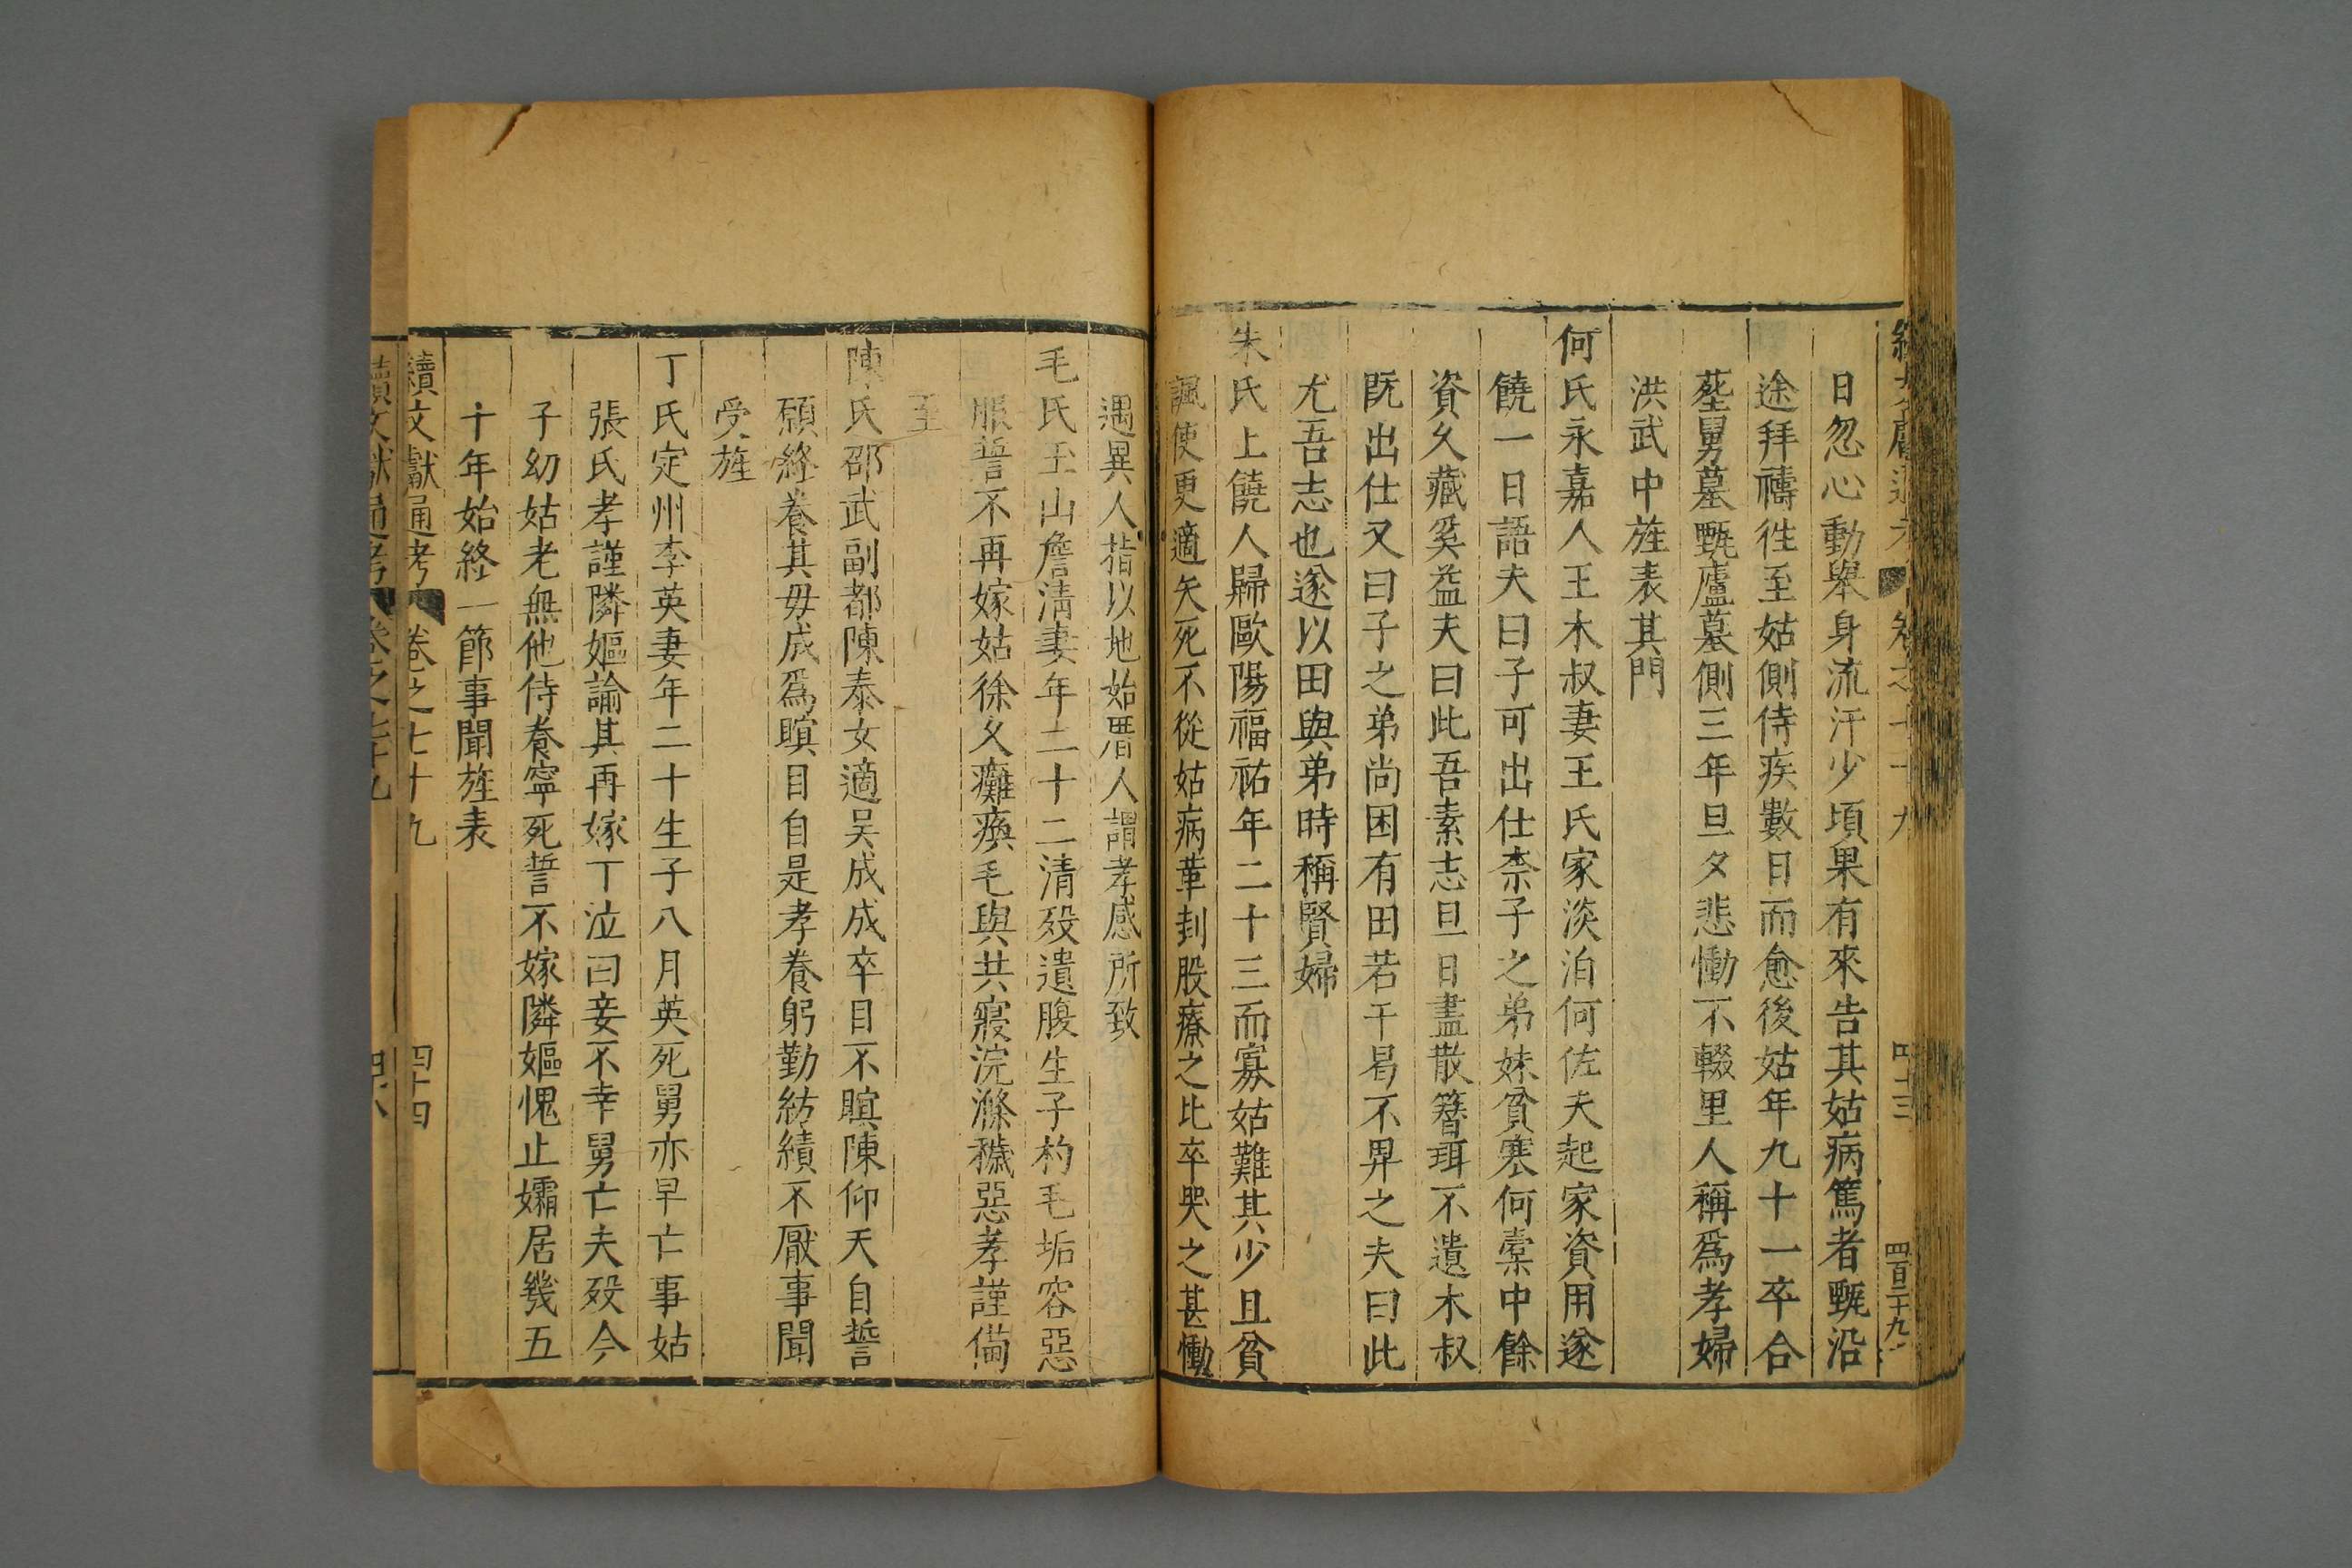 續文獻通考 卷之七十九 四十三 四百三十九
日忽心動舉身流汗少頃果有來告其姑病篤者甄沿
途拜禱徃至姑側侍疾數日而愈後姑年九十一卒合
塟舅墓甄廬墓側三年旦夕悲慟不輟里人稱爲孝婦
洪武中旌表其門
何氏永嘉人王木叔妻王氏家淡泊何佐夫起家資用遂
饒一日語夫曰子可出仕柰子之弟妹貧寒何橐中餘
資久藏奚益夫曰此吾素志旦日盡散簪珥不遺木叔
既出仕又曰子之弟尚困有田若干曷不畀之夫曰此
尤吾志也遂以田與弟時稱賢婦
朱氏上饒人歸歐陽福祐年二十三而寡姑難其少且貧
諷使更適矢死不從姑病革刲股療之比卒哭之甚慟
遇異人指以地始厝人謂孝感所致
毛氏玉山詹清妻年二十二清歿遺腹生子杓毛垢容惡
服誓不再嫁姑徐久癱瘓毛與共寢浣滌穢惡孝謹備
至
陳氏邵武副都陳泰女適吳成成卒目不瞑陳仰天自誓
願終養其毋成爲瞑目自是孝養躬勤紡績不厭事聞
受旌
丁氏定州李英妻年二十生子八月英死舅亦早亡事姑
張氏孝謹隣嫗諭其再嫁丁泣曰妾不幸舅亡夫歿今
子幼姑老無他侍養寧死誓不嫁隣嫗愧止孀居幾五
十年始終一節事聞旌表
續文獻通考 卷之七十九 四十四
續文獻通考 卷之七十九